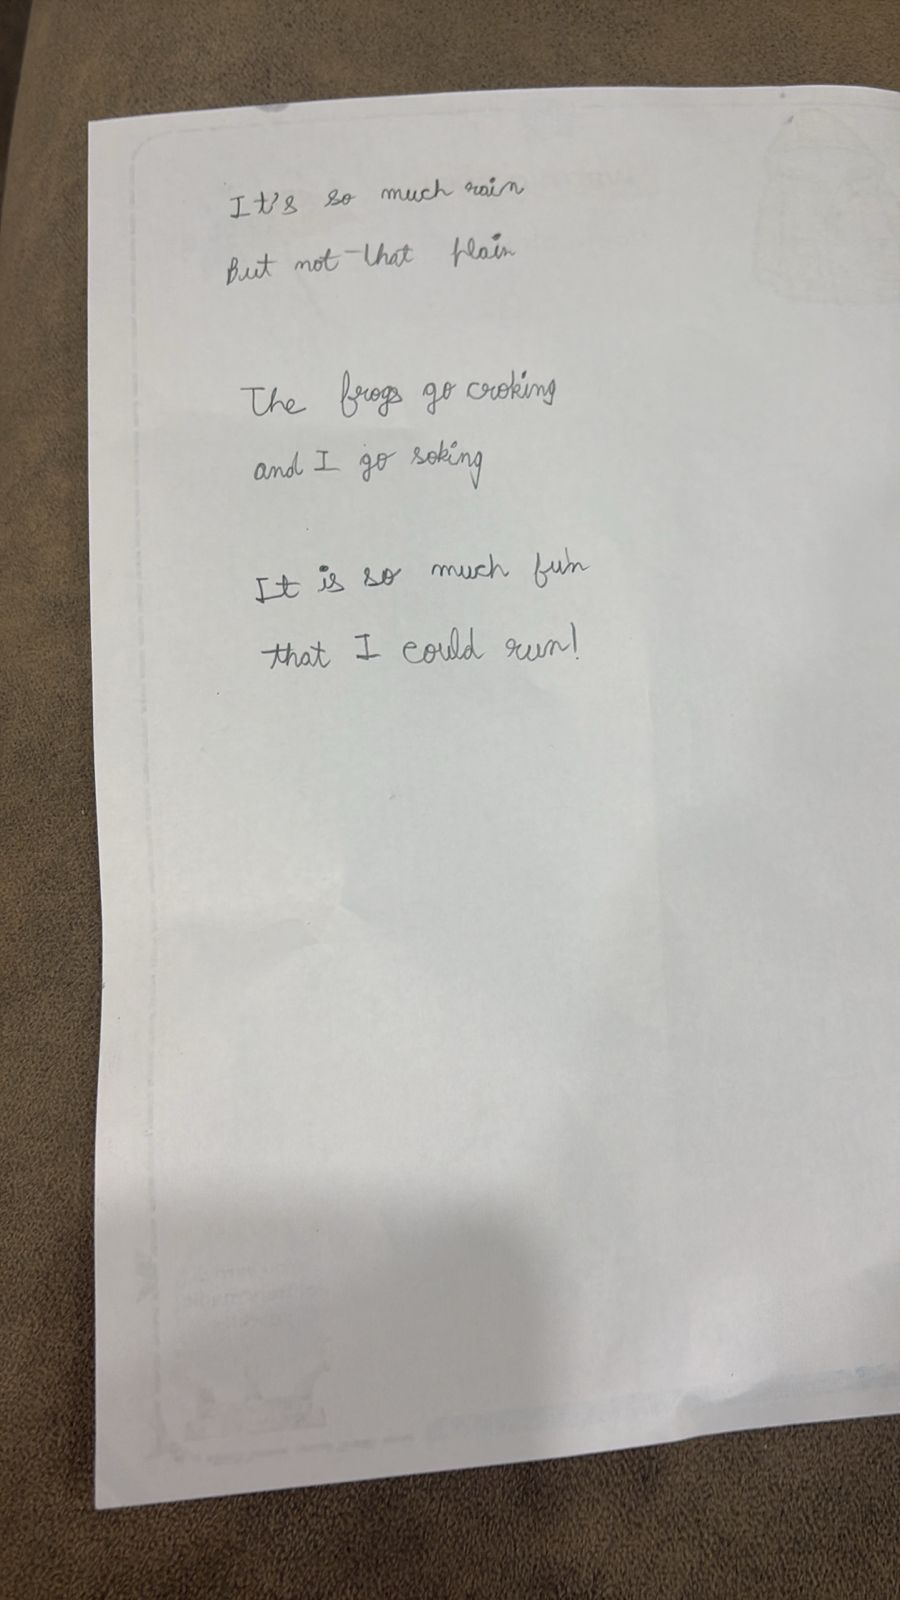 It's so much rain
But not that plain
The frogs go croking
and I go soking
It is so much fun
that I could run!